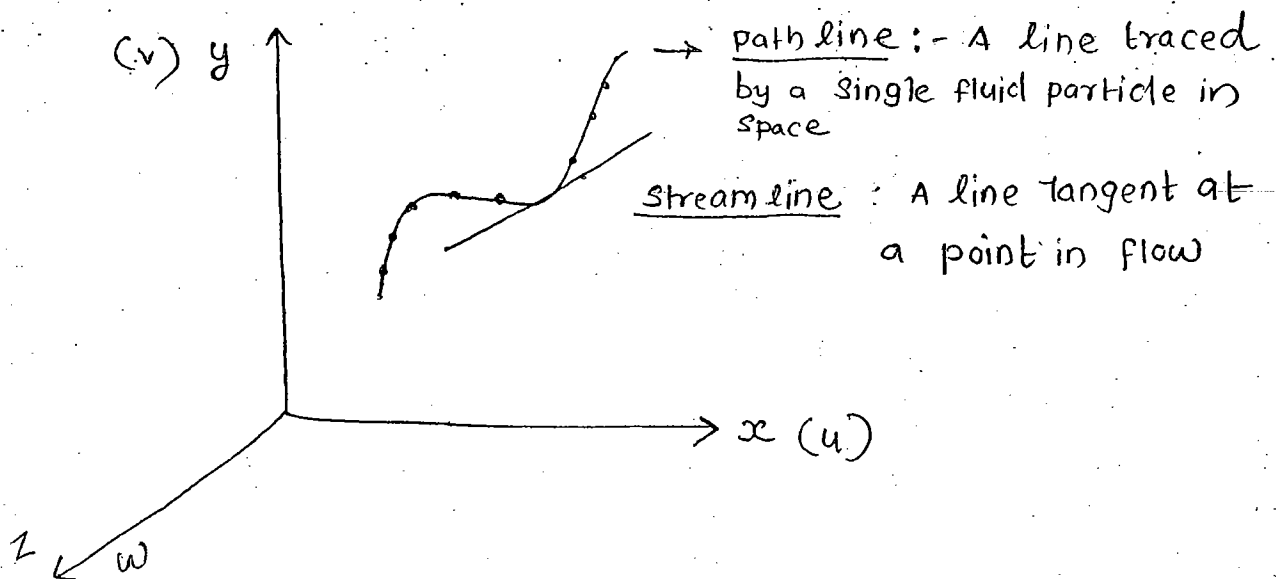 (v) y
→ path line :- A line traced
by a single fluid particle in
space
stream line : A line tangent at
a point in flow
x (u)
z
w